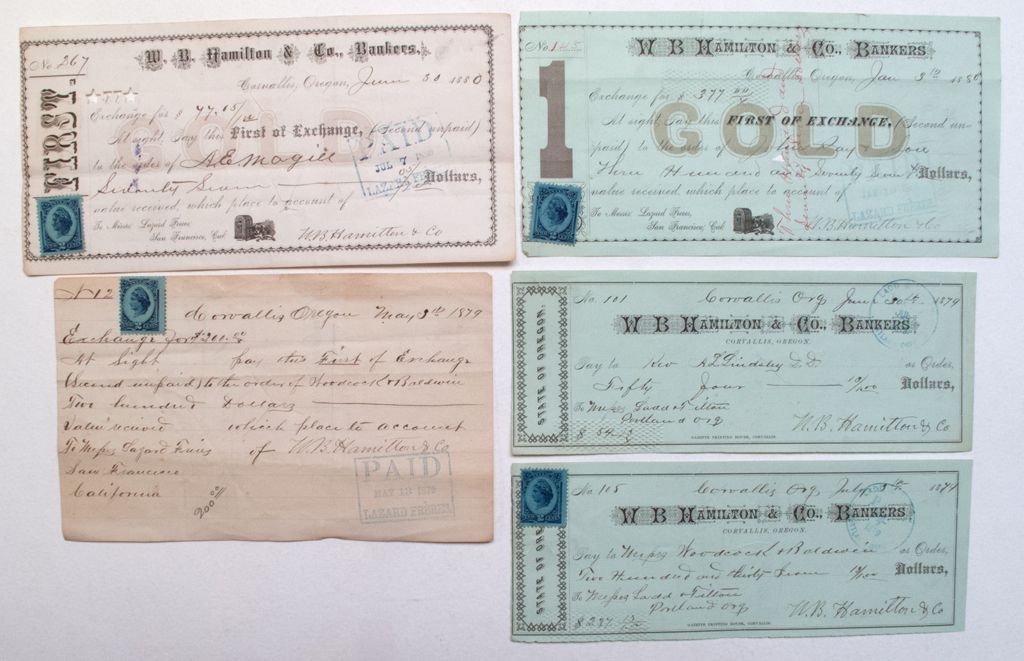 No. 267
W. B. Hamilton & Co., Bankers,
Corvallis, Oregon, June 30 1880
FIRST.
Exchange for $ 77.05/
GOLD
At sight, Pay this First of Exchange, (Second unpaid)
to the order of A E Magill
Seventy Seven Dollars,
value received, which place to account of
To Messrs Lazard Freres,
San Francisco, Cal
W. B. Hamilton & Co
PAID
JUL 7
LAZARD FRERES
2 CENTS
No.
W B HAMILTON & CO., BANKERS
Corvallis, Oregon, Jan 3th 1880
1
Exchange for $ 377
GOLD
At sight Pay this FIRST OF EXCHANGE, (Second un-
paid) to the order of
Three Hundred and Seventy Seven Dollars,
value received, which place to account of
To Messrs Lazard Freres,
San Francisco, Cal
W. B. Hamilton & Co
LAZARD FRERES
No 12
Corvallis Oregon May 9th 1879
Exchange for $200.00
At Sight pay this First of Exchange
(Second unpaid) to the order of Woodcock & Baldwin
Two hundred Dollars
Value received which place to account
To Messrs Lazard Freres of W. B. Hamilton & Co
San Francisco
California
200 00
PAID
MAY 13 1879
LAZARD FRERES
2 CENTS
No. 101 Corvallis Org June 30th 1879
W B HAMILTON & CO., BANKERS
CORVALLIS, OREGON.
STATE OF OREGON.
Pay to Rev A L Lindsley D. D. or Order,
Fifty four Dollars,
To Messrs Ladd & Tilton
Portland Org
W. B. Hamilton & Co
$ 54
GAZETTE PRINTING HOUSE, CORVALLIS.
2 CENTS
No 105 Corvallis Org July 5th 1879
W B HAMILTON & CO., BANKERS
CORVALLIS, OREGON.
STATE OF OREGON
Pay to Messrs Woodcock & Baldwin or Order,
Two Hundred and thirty Seven Dollars,
To Messrs Ladd & Tilton
Portland Org
W. B. Hamilton & Co
$ 237
GAZETTE PRINTING HOUSE, CORVALLIS.